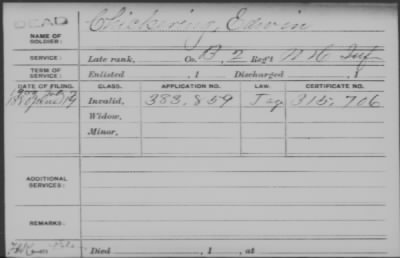 DEAD
NAME OF SOLDIER: Chickering, Edwin
SERVICE: Late rank, Co. B. 2 Reg't N H Inf
TERM OF SERVICE: Enlisted , 1 Discharged , 1
DATE OF FILING. CLASS. APPLICATION NO. LAW. CERTIFICATE NO.
1880 June 19 Invalid, 383,859 315,706
Widow,
Minor,
ADDITIONAL SERVICES:
REMARKS:
Died , 1 , at